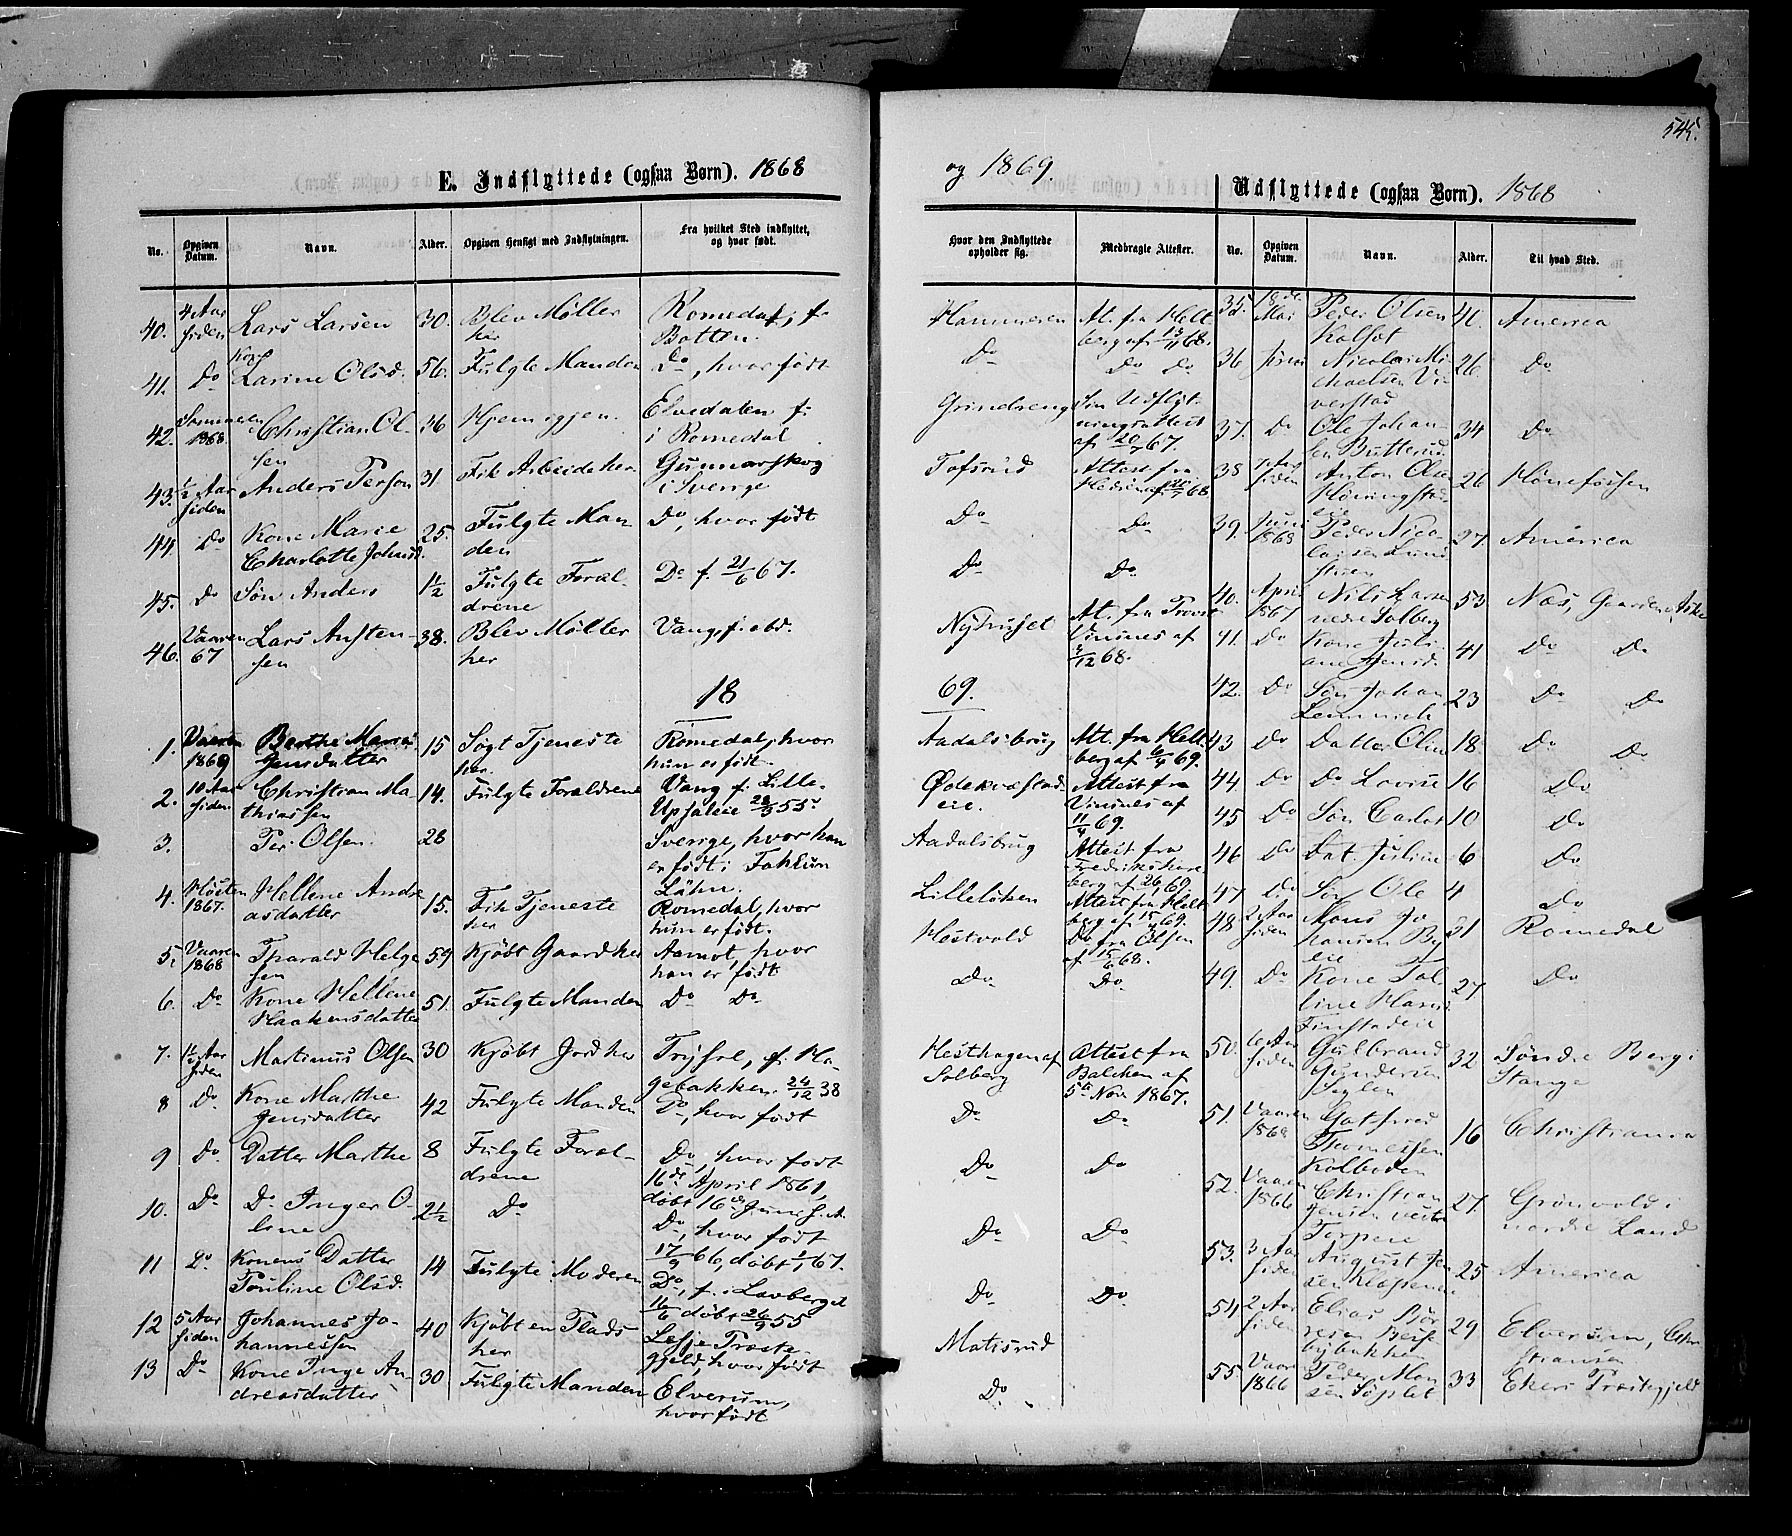 545.
E. Indflyttede (ogsaa Børn). 1868
og 1869.
Udflyttede (ogsaa Børn). 1868
No. Opgiven Datum. Navn. Alder. Opgiven Hensigt med Indflytningen. Fra hvilket Sted indflyttet, og hvor født.
Hvor den Indflyttede opholder sig. Medbragte Attester. No. Opgiven Datum. Navn. Alder. Til hvad Sted.
40. 4 Aar siden Lars Larsen 30. Blev Møller her Romedal, f.
41. Do Kone Karine Olsd. 56. Fulgte Manden Do, hvor født
42. Sommeren 1868 Christian Olsen 36 Hjem igjen. Elvedalen f. i Romedal
43. 1/2 Aar siden Anders Person 31 Fik Arbeide her Gunnarskog i Sverige
44. Do Kone Marie Charlotte Johnsd. 25. Fulgte Manden Do, hvor født
45. Do Søn Anders 1 1/2 Fulgte Forældrene Do f. 21/6 67.
46. Vaaren 67 Lars Austensen 38. Blev Møller her Vang, f. ebd.
18
1. Vaaren 1869 Berthe Marie Jensdatter 15 Søgt Tjeneste her. Romedal, hvor hun er født.
2. 10 Aar siden. Christian Mathiassen 14. Fulgte Forældrene Vang f. Lille Upsaleie 28/3 55
3. Per Olsen. 28 Sverige, hvor han er født i
4. Høsten 1867. Hellene Andreasdatter 15. Fik Tjeneste her Romedal, hvor hun er født.
5. Vaaren 1868 Tharald Helgesen 59 Kjøbt Gaard her Aamot, hvor han er født
6. Do Kone Hellene Haakensdatter 51. Fulgte Manden Do Do
7. 1 1/2 Aar siden Martinus Olsen 30 Kjøbt Jord her Trysil, f. Hagebakken. 24/12 38
8 Do Kone Marthe Jensdatter 42 Fulgte Manden Do, hvor født
9 Do. Datter Marthe 8 Fulgte Forældrene Do, hvor født 16de April 1861, døbt 16de Juni s. A.
10. Do Do Inger Olsine 2 1/2 Do Do, hvor født 17/9 66, døbt 1/1 67.
11 Do Konens Datter Pauline Olsd. 14 Fulgte Moderen Do, f. i Lavberget 16/6 døbt 26/9 55
12 5 Aar siden Johannes Johannessen 40 Kjøbt en Plads her Lesje Præstegjeld, hvor født
13 Do Kone Inge Andreasdatter 30 Fulgte Manden Elverum, hvor født
Hammeren At. fra Heltberg af 13/11 68.
Do Do Do
Grindreng Sin Udflytningsattest af 20/7 67.
Tofsrud Attest fra
Do Do
Do Do
Nythuset At. fra
Vinsnes af 3/12 68.
69.
Aadalsbrug Att. fra Heltberg af 6/4 69.
Ødekvæstadeie. Attest fra Vinsnes af 11/4 69.
Aadalsbrug Attest fra
Lilleløken Attest fra Heltberg af
Høstvold Do fra Olsen af 15/6 68.
Do Do
Hesthagen af Solberg Attest fra Balchen af 5te Nov. 1867.
Do Do
Do Do
Do Do
Do Do
Matisrud
Do
35. 18de Mai Peder Olsen 41. America
36 Nicolai Michaelsen 26 Do
37. Do Ole Johansen Butterud 34 Do
38 siden Anton Olsen 26 Hønefossen
39. Juni 1868 Peder Nicolaisen 27 America
40. April 1867 Nils Larsen nedre Solberg 53 Næs, Gaarden
41. Do Kone Juliane Jensd. 41 Do Do
42. Do Søn Johan 23 Do Do
43 Do Datter Oline 18 Do Do
44. Do Do Lovise 16 Do
45 Do Søn Carl 10 Do
46 Do Dat. Juline 6 Do
47 Do Søn Ole 4 Do
48 2 Aar siden Hans Johansen 31 Romedal
49. Do Kone 27 Do
50. 6 Aar siden Gulbrand Gundersen 32 Søndre Berg i Stange
51. Vaaren 1868 16 Christiania
52. Vaaren 1866 Christian Jensen 27 Grønvold i nordre Land
53. 3 Aar siden August Jensen 25 America
54 2 Aar siden Elias 29 Elverum,
55 Vaaren 1866 Peder 33 Ekers Præstegjeld